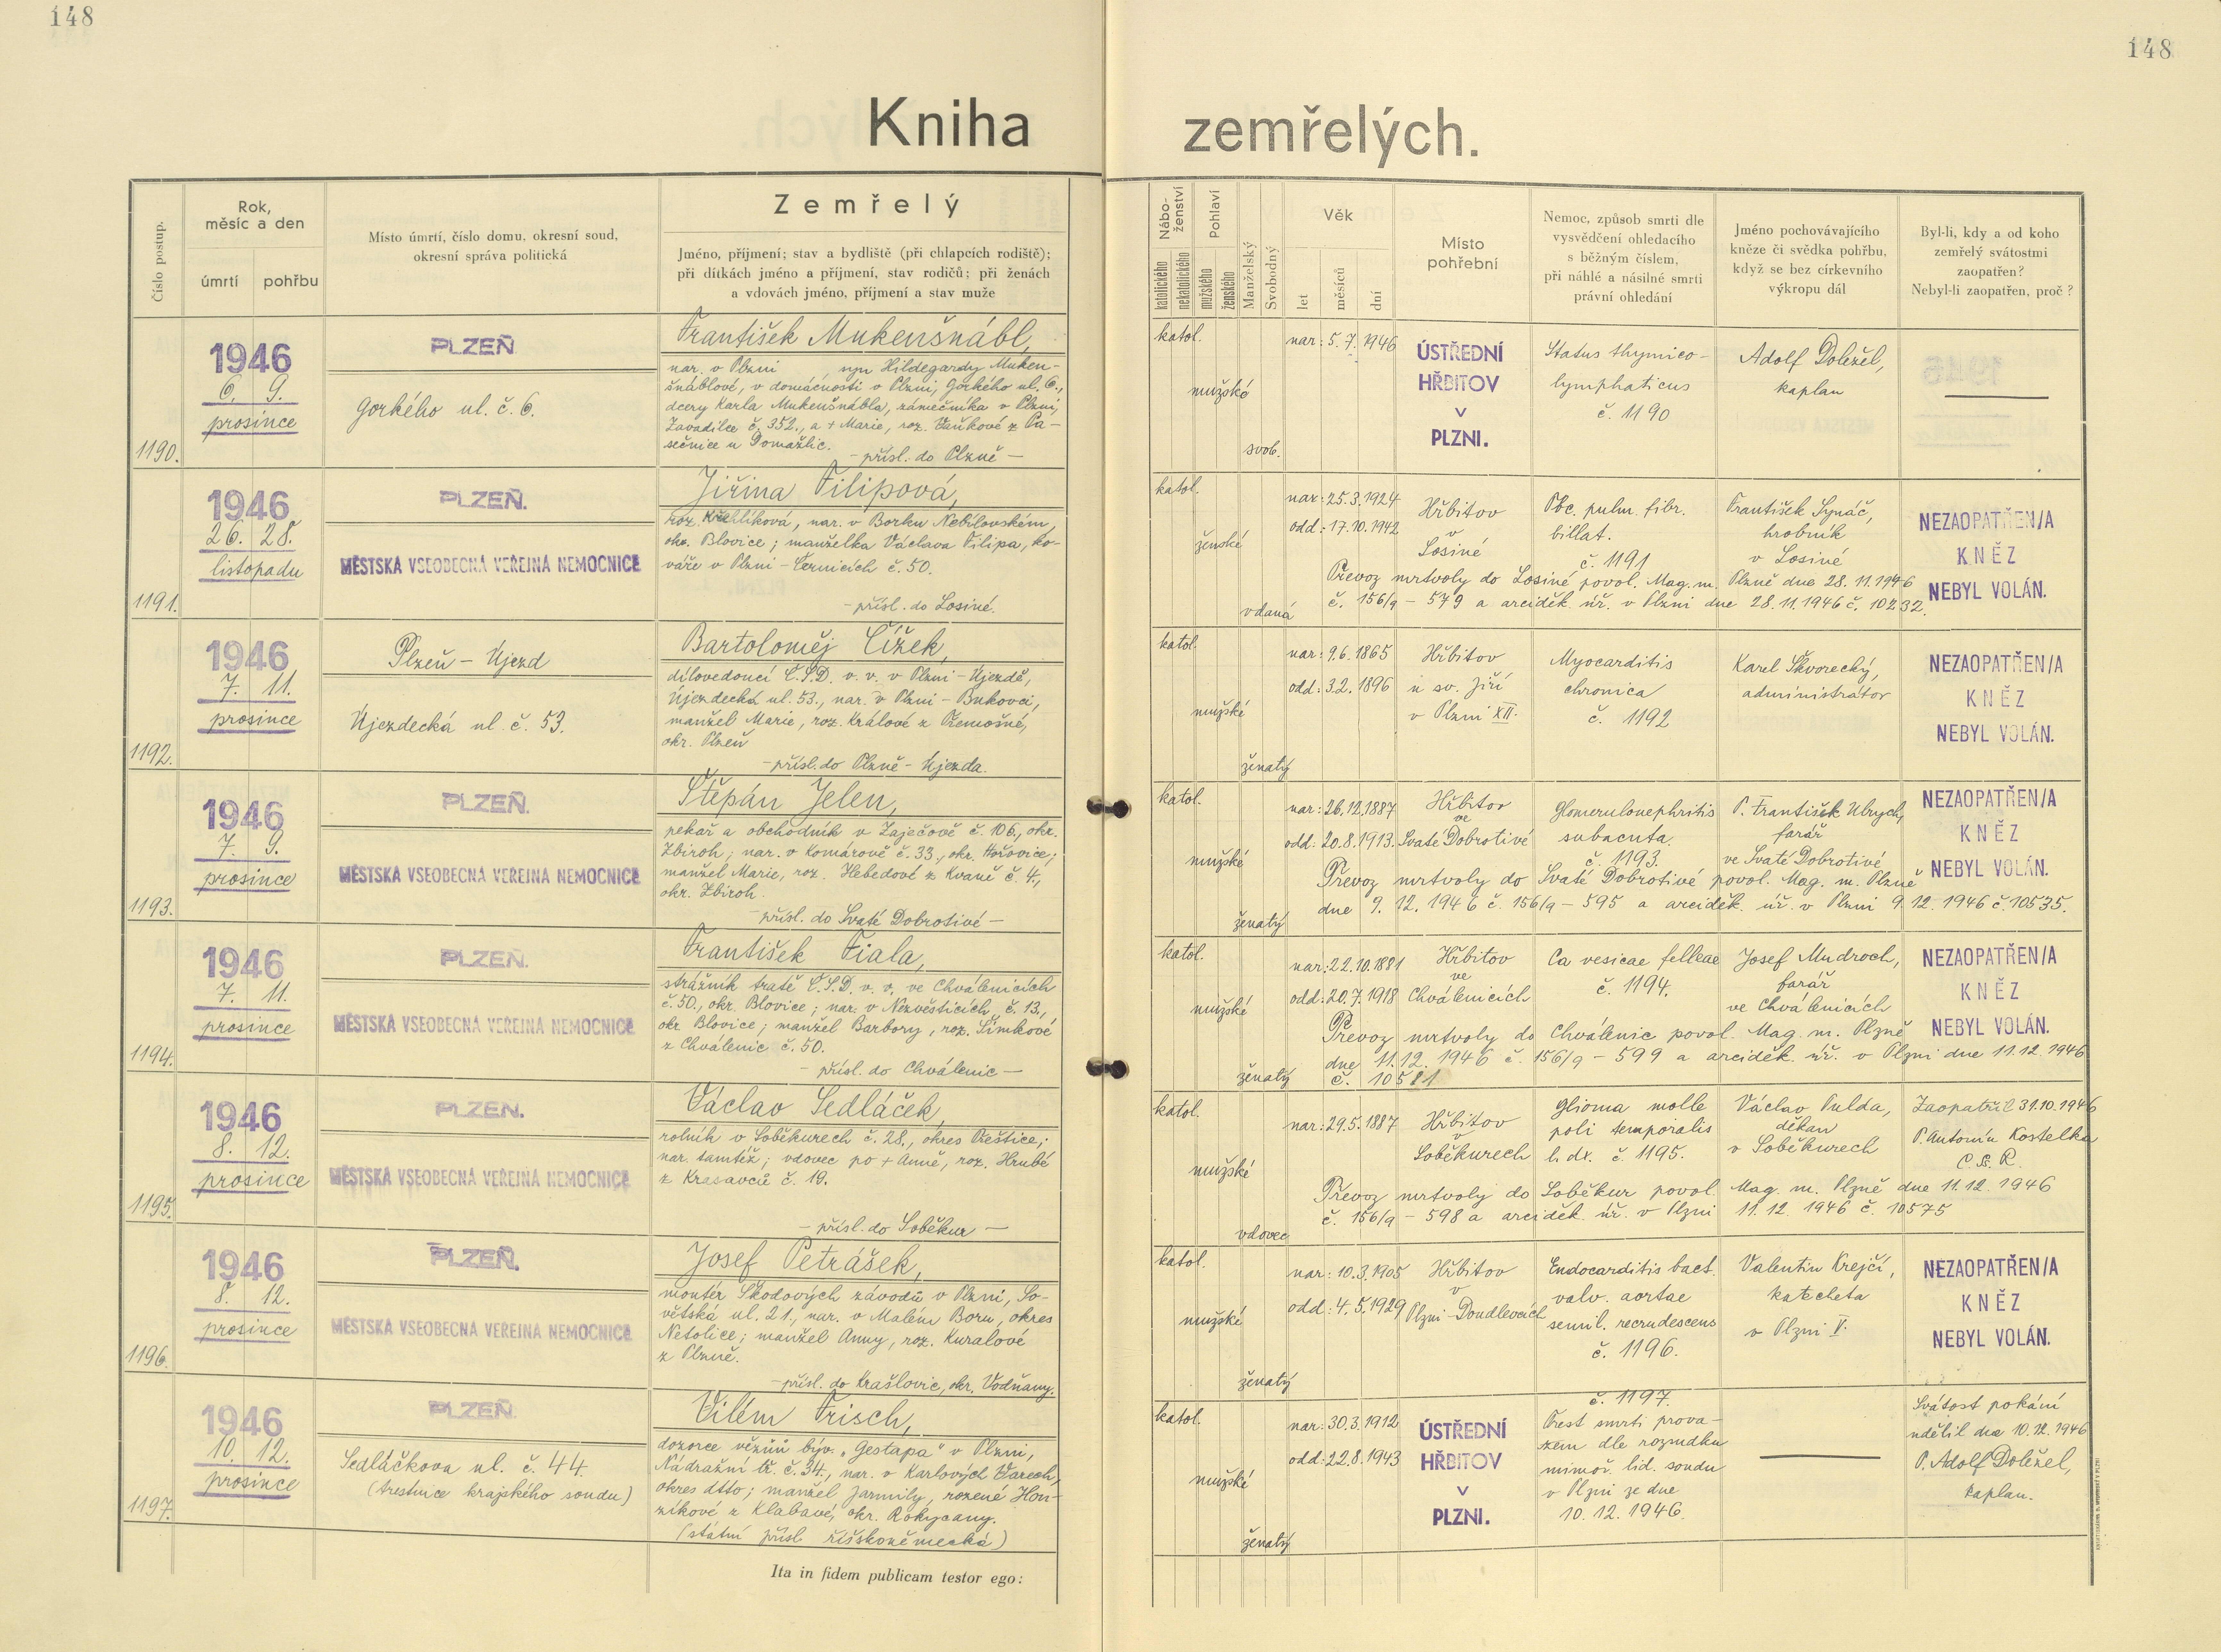 148
148
Kniha zemřelých.
Číslo postup.
Rok,
měsíc a den
úmrtí
pohřbu
Místo úmrtí, číslo domu, okresní soud,
okresní správa politická
Zemřelý
Jméno, příjmení; stav a bydliště (při chlapcích rodiště);
při dítkách jméno a příjmení, stav rodičů; při ženách
a vdovách jméno, příjmení a stav muže
Nábo-
ženství
katolického
nekatolického
Pohlaví
mužského
ženského
Manželský
Svobodný
Věk
let
měsíců
dní
Místo
pohřební
Nemoc, způsob smrti dle
vysvědčení ohledacího
s běžným číslem,
při náhlé a násilné smrti
právní ohledání
Jméno pochovávajícího
kněze či svědka pohřbu,
když se bez církevního
výkropu dál
Byl-li, kdy a od koho
zemřelý svátostmi
zaopatřen?
Nebyl-li zaopatřen, proč?
1190.
1946
6. 9.
prosince
PLZEŇ
Gorkého ul. č. 6.
František Mukenšnábl,
nar. v Plzni, syn Hildegardy Muken-
šnáblové, v domácnosti v Plzni, Gorkého ul. 6.,
dcery Karla Mukenšnábla, zámečníka v Plzni,
Zavadilce č. 352., a + Marie, roz. Vaňkové z Pa-
sečnice u Domažlic.
- přísl. do Plzně -
katol.
mužské
svob.
nar: 5. 7. 1946
ÚSTŘEDNÍ
HŘBITOV
V
PLZNI.
Status thymico-
lymphaticus
č. 1190
Adolf Doležel,
kaplan
1191.
1946
26. 28.
listopadu
PLZEŇ.
MĚSTSKÁ VŠEOBECNÁ VEŘEJNÁ NEMOCNICE
Jiřina Filipová,
roz. Křehlíková, nar. v Borku Nebílovském,
okr. Blovice; manželka Václava Filipa, ko-
váře v Plzni - Černicích č. 50.
- přísl. do Losiné.
katol.
ženské
vdaná
nar: 25.3.1924
odd: 17.10.1942
Hřbitov
v
Losiné
Tbc. pulm. fibr.
billat.
č. 1191
František Synáč,
hrobník
v Losiné
NEZAOPATŘEN/A
KNĚZ
NEBYL VOLÁN.
Převoz mrtvoly do Losiné povol. Mag. m. Plzně dne 28. 11. 1946
č. 156/9 - 579 a arciděk. úř. v Plzni dne 28. 11. 1946 č. 10232.
1192.
1946
7. 11.
prosince
Plzeň - Újezd
Újezdecká ul. č. 53.
Bartoloměj Čížek,
dílovedoucí Č.S.D. v. v. v Plzni - Újezdě,
Újezdecká ul. 53., nar. v Plzni - Bukovci,
manžel Marie, roz. Králové z Třemošné,
okr. Plzeň
- přísl. do Plzně - Újezda.
katol.
mužské
ženatý
nar: 9.6.1865
odd: 3.2.1896
Hřbitov
u sv. Jiří
v Plzni XII.
Myocarditis
chronica
č. 1192
Karel Škvorecký,
administrátor
NEZAOPATŘEN/A
KNĚZ
NEBYL VOLÁN.
1193.
1946
7. 9.
prosince
PLZEŇ.
MĚSTSKÁ VŠEOBECNÁ VEŘEJNÁ NEMOCNICE
Štěpán Jelen,
pekař a obchodník v Zaječově č. 106., okr.
Zbiroh; nar. v Komárově č. 33., okr. Hořovice;
manžel Marie, roz. Hebedové z Kvaně č. 4.,
okr. Zbiroh.
- přísl. do Svaté Dobrotivé -
katol.
mužské
ženatý
nar: 26.12.1887
odd: 20.8.1913.
Hřbitov
ve
Svaté Dobrotivé
Glomerulonephritis
subacuta.
č. 1193.
P. František Ulrych,
farář
ve Svaté Dobrotivé
NEZAOPATŘEN/A
KNĚZ
NEBYL VOLÁN.
Převoz mrtvoly do Svaté Dobrotivé povol. Mag. m. Plzně
dne 9. 12. 1946 č. 156/9 - 595 a arciděk. úř. v Plzni 9. 12. 1946 č. 10535.
1194.
1946
7. 11.
prosince
PLZEŇ.
MĚSTSKÁ VŠEOBECNÁ VEŘEJNÁ NEMOCNICE
František Fiala,
strážník tratě Č.S.D. v. v. ve Chválenicích
č. 50., okr. Blovice; nar. v Nezvěsticích č. 13.,
okr. Blovice; manžel Barbory, roz. Šimkové
z Chválenic č. 50.
- přísl. do Chválenic -
katol.
mužské
ženatý
nar: 22.10.1881
odd: 20.7.1918
Hřbitov
ve
Chválenicích
Ca vesicae felleae
č. 1194.
Josef Mudroch,
farář
ve Chválenicích
NEZAOPATŘEN/A
KNĚZ
NEBYL VOLÁN.
Převoz mrtvoly do Chválenic povol. Mag. m. Plzně
dne 11.12. 1946 č. 156/9 - 599 a arciděk. úř. v Plzni dne 11.12. 1946
č. 10581
1195.
1946
8. 12.
prosince
PLZEŇ.
MĚSTSKÁ VŠEOBECNÁ VEŘEJNÁ NEMOCNICE
Václav Sedláček,
rolník v Soběkurech č. 28., okres Přeštice;
nar. tamtéž; vdovec po + Anně, roz. Hrubé
z Krasavců č. 19.
- přísl. do Soběkur -
katol.
mužské
vdovec
nar: 29.5.1887
Hřbitov
v
Soběkurech
Glioma molle
poli temporalis
l. dx. č. 1195.
Václav Pulda,
děkan
v Soběkurech
Zaopatřil 31.10.1946
P. Antonín Kostelka
C. Ss. R.
Převoz mrtvoly do Soběkur povol. Mag. m. Plzně dne 11.12. 1946
č. 156/9 - 598 a arciděk. úř. v Plzni 11.12. 1946 č. 10575
1196.
1946
8. 12.
prosince
PLZEŇ.
MĚSTSKÁ VŠEOBECNÁ VEŘEJNÁ NEMOCNICE
Josef Petrášek,
montér Škodových závodů v Plzni, So-
větská ul. 21., nar. v Malém Boru, okres
Netolice; manžel Anny, roz. Kuralové
z Plzně.
- přísl. do Krašlovic, okr. Vodňany.
katol.
mužské
ženatý
nar: 10.3.1905
odd: 4.5.1929
Hřbitov
v
Plzni - Doudlevcích
Endocarditis bact.
valv. aortae
semil. recrudescens
č. 1196.
Valentin Krejčí,
katecheta
v Plzni V.
NEZAOPATŘEN/A
KNĚZ
NEBYL VOLÁN.
1197.
1946
10. 12.
prosince
PLZEŇ.
Sedláčkova ul. č. 44
(trestnice krajského soudu)
Vilém Frisch,
dozorce vězňů býv. „Gestapa" v Plzni,
Nádražní tř. č. 34., nar. v Karlových Varech,
okres dtto; manžel Jarmily, rozené Hon-
zíkové z Klabavé, okr. Rokycany.
(státní přísl. říšskoněmecká)
katol.
mužské
ženatý
nar: 30.3.1912
odd: 22.8.1943
ÚSTŘEDNÍ
HŘBITOV
V
PLZNI.
č. 1197.
Trest smrti prova-
zem dle rozsudku
mimoř. lid. soudu
v Plzni ze dne
10. 12. 1946.
Svátost pokání
udělil dne 10.12.1946
P. Adolf Doležel,
kaplan.
Ita in fidem publicam testor ego: